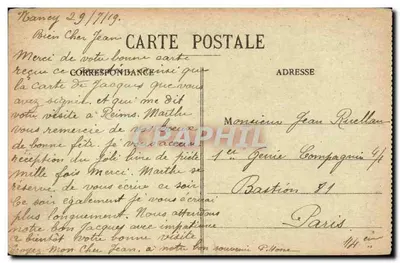 Nancy 29/7/19.
Bien Cher Jean
CARTE POSTALE
Merci de votre bonne carte
reçue ce ainsi que
CORRESPONDANCE
ADRESSE
la carte de Jacques que vous
avez signée et qui me dit
votre visite à Reims. Maithe
vous remercie de
de bonne fête. Je
CPARAMA
réception du joli livre de piété
mille fois Merci. Maithe se
réserve de vous écrire ce soir.
Ce soir également je vous écrirai
plus longuement. Nous attendons
notre bon Jacques avec impatience
à bientôt votre bonne visite
Mon Cher Jean, à notre bon souvenir
Monsieur Jean Ruellan
1er Génie Compagnie
Bastion 81
Paris
14 ème